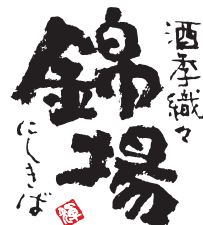 酒季織々
錦場
にしきば